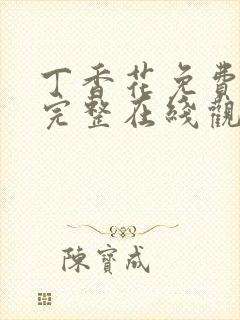 丁香花免費
完整在綫觀
陳寶成